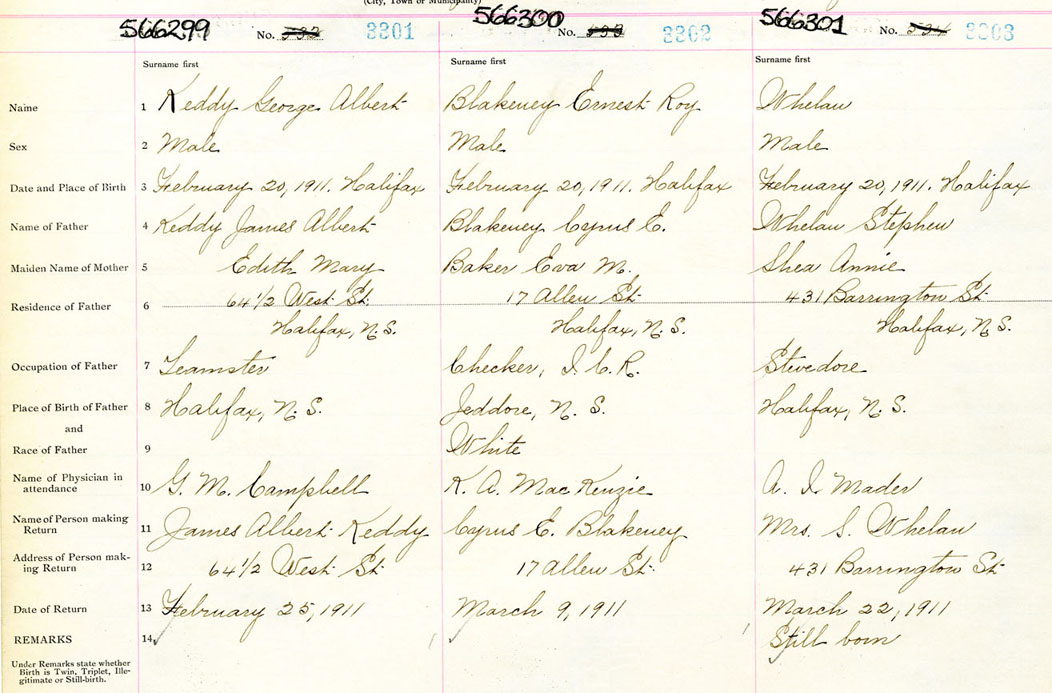 (City, Town or Municipality)
566299 No. 3301 566300 No. 3302 566301 No. 3303
Surname first Surname first Surname first
Name 1 Keddy George Albert Blakeney Ernest Roy Whelan
Sex 2 Male Male Male
Date and Place of Birth 3 February 20, 1911. Halifax February 20, 1911. Halifax February 20, 1911. Halifax
Name of Father 4 Keddy James Albert Blakeney Cyrus E. Whelan Stephen
Maiden Name of Mother 5 Edith Mary Baker Eva M. Shea Annie
Residence of Father 6 64 1/2 West St. 17 Allen St. 431 Barrington St.
Halifax, N.S. Halifax, N.S. Halifax, N.S.
Occupation of Father 7 Teamster Checker, I.C.R. Stevedore
Place of Birth of Father 8 Halifax, N.S. Jeddore, N.S. Halifax, N.S.
and
Race of Father 9 White
Name of Physician in
attendance 10 G. M. Campbell K. A. MacKenzie A. I. Mader
Name of Person making
Return 11 James Albert Keddy Cyrus E. Blakeney Mrs. S. Whelan
Address of Person mak-
ing Return 12 64 1/2 West St. 17 Allen St. 431 Barrington St.
Date of Return 13 February 25, 1911 March 9, 1911 March 22, 1911
REMARKS 14 Still born
Under Remarks state whether
Birth is Twin, Triplet, Ille-
gitimate or Still-birth.